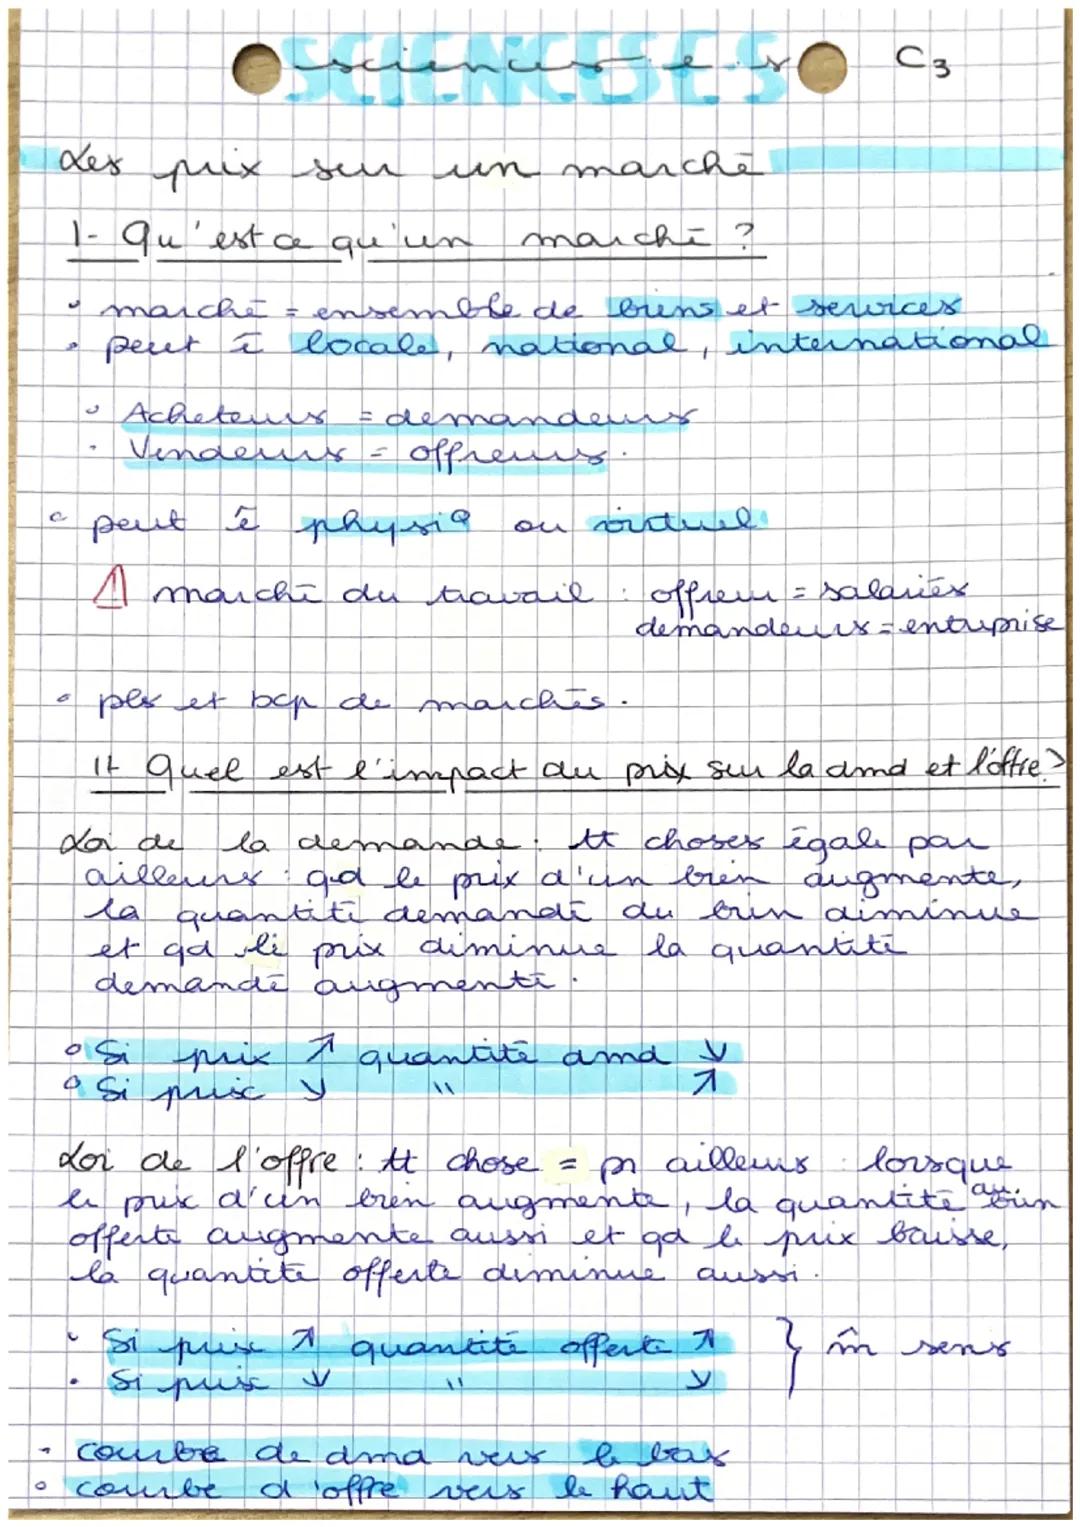 SCIENCES E S
sciences e s C3
Les prix sur un marché
1- Qu'est ce qu'un marché ?
• marché = ensemble de biens et services
• peut ê locale, national, international
• Acheteurs = demandeurs
• Vendeurs = offreurs.
• peut ê physiq ou virtuel
⚠ marché du travail : offreur = salariés
demandeurs = entreprise
• pls et bcp de marchés.
II- Quel est l'impact du prix sur la dmd et l'offre ?
Loi de la demande : tt choses égale par
ailleurs : qd le prix d'un bien augmente,
la quantité demandé du bien diminue
et qd le prix diminue la quantité
demandé augmente.
• Si prix ↗ quantité dmd ↘
• Si prix ↘ " ↗
Loi de l'offre : tt chose = pr ailleurs : lorsque
le prix d'un bien augmente, la quantité du bien
offerte augmente aussi et qd le prix baisse,
la quantité offerte diminue aussi.
• Si prix ↗ quantité offerte ↗ } m̂ sens
• Si prix ↘ " ↘
• courbe de dmd vers le bas
• courbe d'offre vers le haut